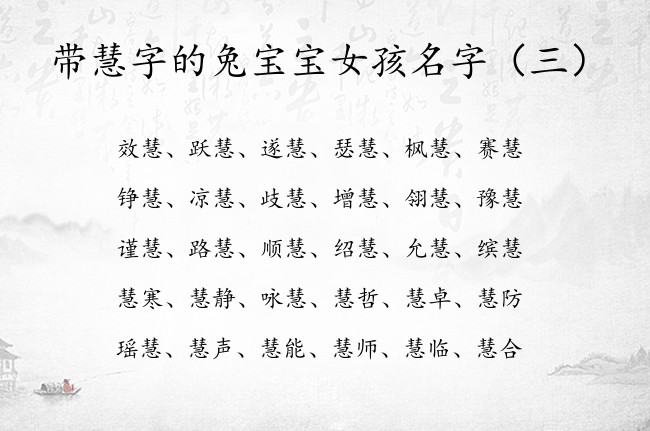 带慧字的兔宝宝女孩名字（三）
效慧、跃慧、遂慧、瑟慧、枫慧、赛慧
铮慧、凉慧、歧慧、增慧、翎慧、豫慧
谨慧、路慧、顺慧、绍慧、允慧、缤慧
慧寒、慧静、咏慧、慧哲、慧卓、慧防
瑶慧、慧声、慧能、慧师、慧临、慧合